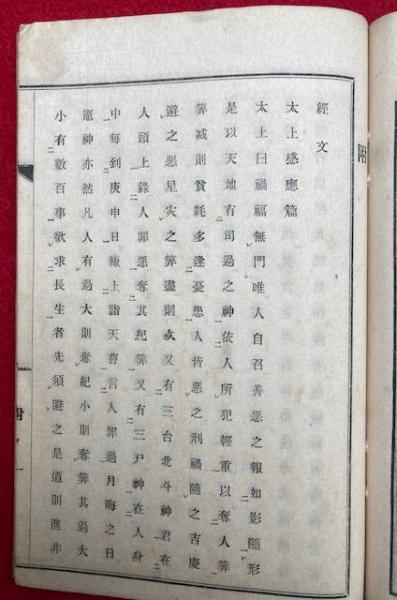 經文
太上感應篇
太上曰禍福無門唯人自召善惡之報如影隨形
是以天地有司過之神依人所犯輕重以奪人筭
筭减則貧耗多逢憂患人皆惡之刑禍隨之吉慶
避之惡星災之筭盡則死又有三台北斗神君在
人頭上錄人罪惡奪其紀筭又有三尸神在人身
中每到庚申日輙上詣天曹言人罪過月晦之日
竈神亦然凡人有過大則奪紀小則奪筭其過大
小有數百事欲求長生者先須避之是道則進非
附